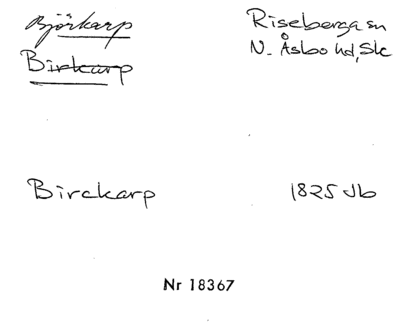 Björkarp
Riseberga sn
Birkarp
N. Åsbo hd, Sk
Birckarp
1825 Jb
Nr 18367